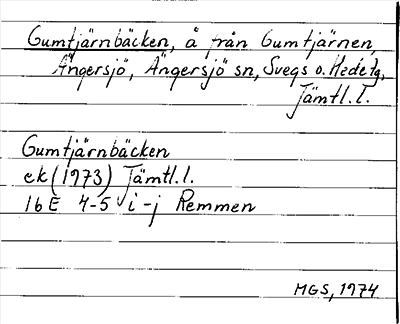 Gumtjärnbäcken, å från Gumtjärnen,
Ängersjö, Ängersjö sn, Svegs o. Hede tg,
Jämtl. l.
Gumtjärnbäcken
ek (1973) Jämtl. l.
16 E 4-5 i-j Remmen
MGS, 1974